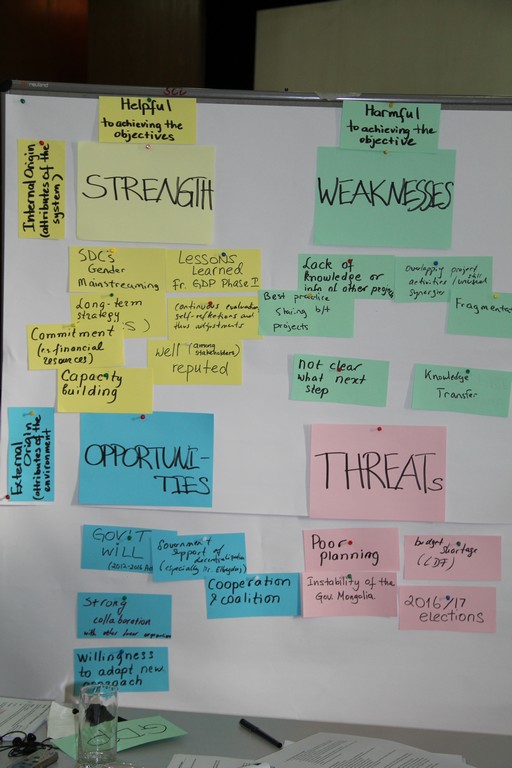 Helpful
to achieving the
objectives
Harmful
to achieving the
objective
Internal Origin
(attributes of the
system)
STRENGTH
WEAKNESSES
SDC's
Gender
Mainstreaming
LESSONS
Learned
Fr. GDP Phase I
Long-term
strategy
Continuous evaluation
self-reflections and
thus adjustments
Commitment
(es. financial
resources)
Well (among
stakeholders)
reputed
Capacity
building
Lack of
Knowledge or
info of other
Overlapping project
activities
synergies
Best practice
sharing b/t
projects
Fragmente
not clear
what next
step
Knowledge
Transfer
External
Origin
(attributes of the
environment
OPPORTUNI-
TIES
THREATs
GOV'T
WILL
Government
support of
decentralization
(especially
Cooperation
& coalition
Strong
collaboration
with other
Willingness
to adapt new
approach
Poor
planning
budget
shortage
(LDF)
Instability of the
Gov. Mongolia
2016/17
elections